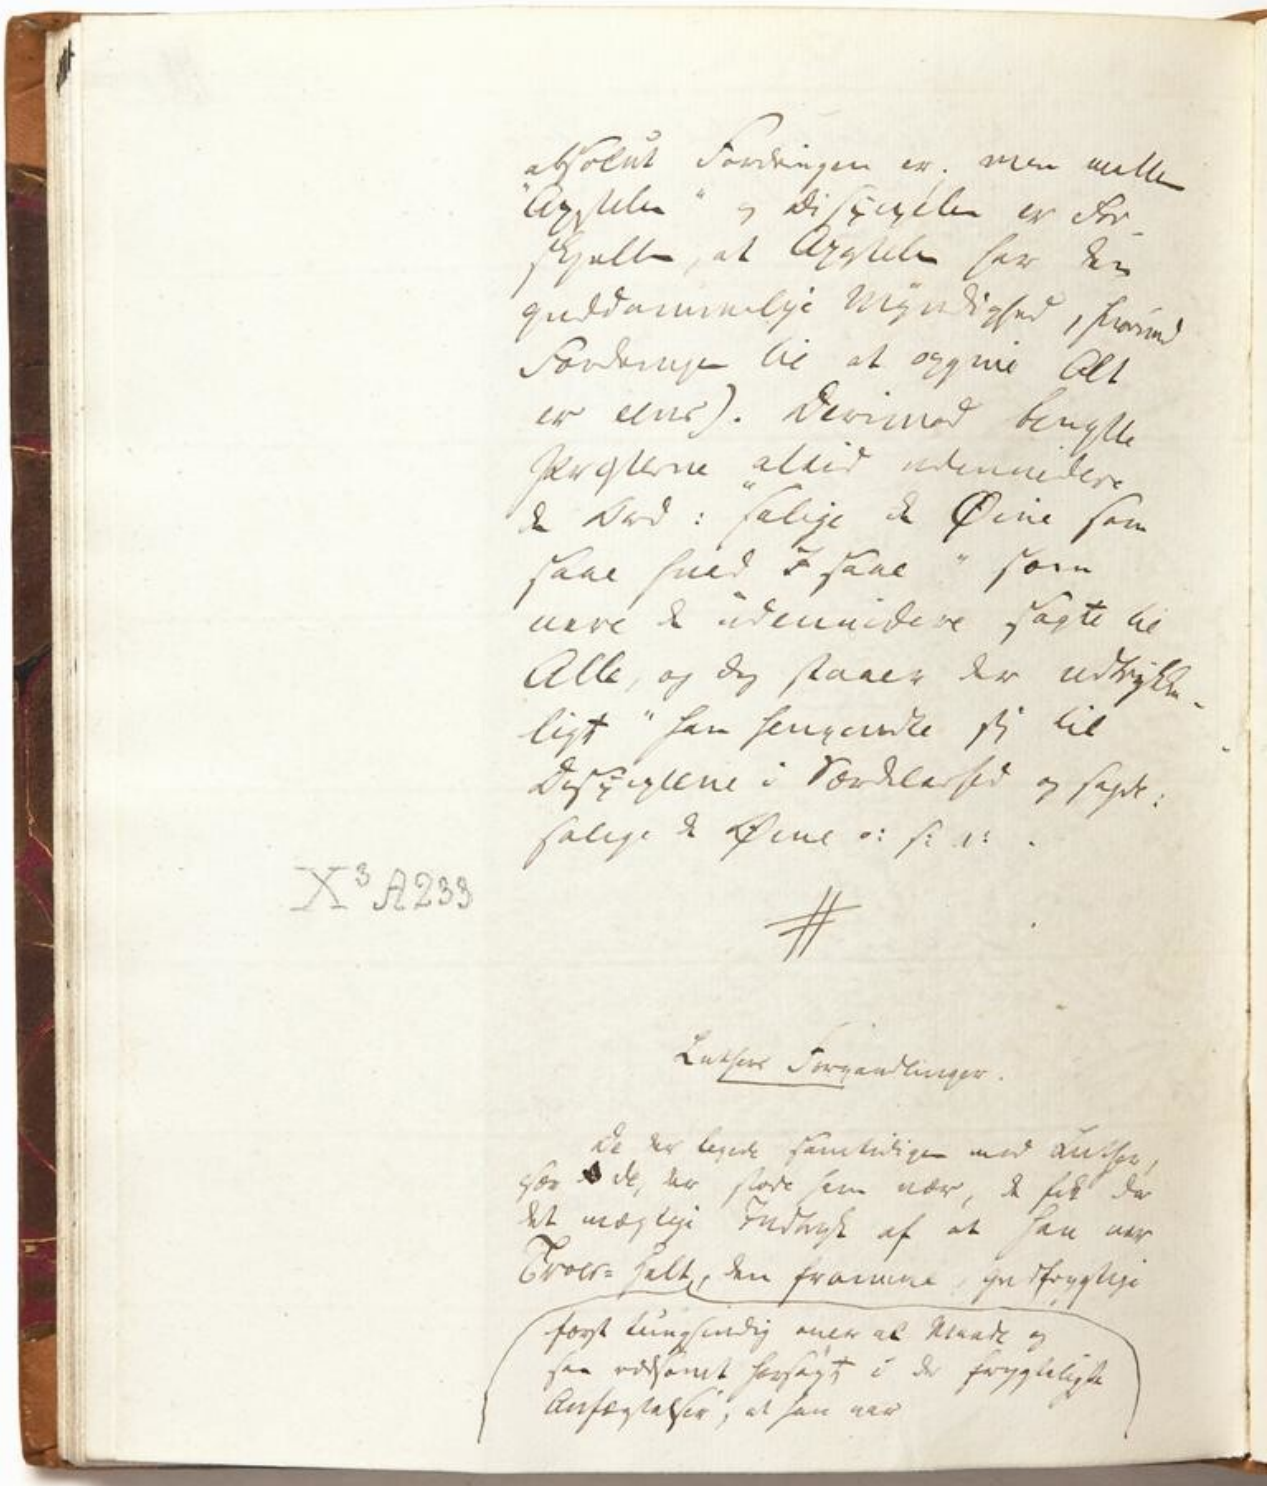 absolut Fordringen er. men mellem
"Apostelen" og Disciplen er For-
skjellen, at Apostelen har den
guddommelige Myndighed, hvorimod
Fordringen til at opgive Alt
er eens). Derimod benytte
Præsterne altid udenvidere
de Ord: "salige de Øine som
saae hvad I saae" som
vare de udenvidere sagte til
Alle, og dog staaer der udtrykke-
ligt "han henvendte sig til
Disciplene i Særdeleshed og sagde:
salige de Øine o: s: v: .
X³ A233
#
Luthers Forvandlinger.
De der levede samtidigen med Luther,
især de, der stode ham nær, de fik da
det mægtige Indtryk af at han var
Troes-Helt, den fromme, gudfrygtige
først tungsindig over al Maade og
saa rædsomt forsøgt i de frygteligste
Anfægtelser, at han var